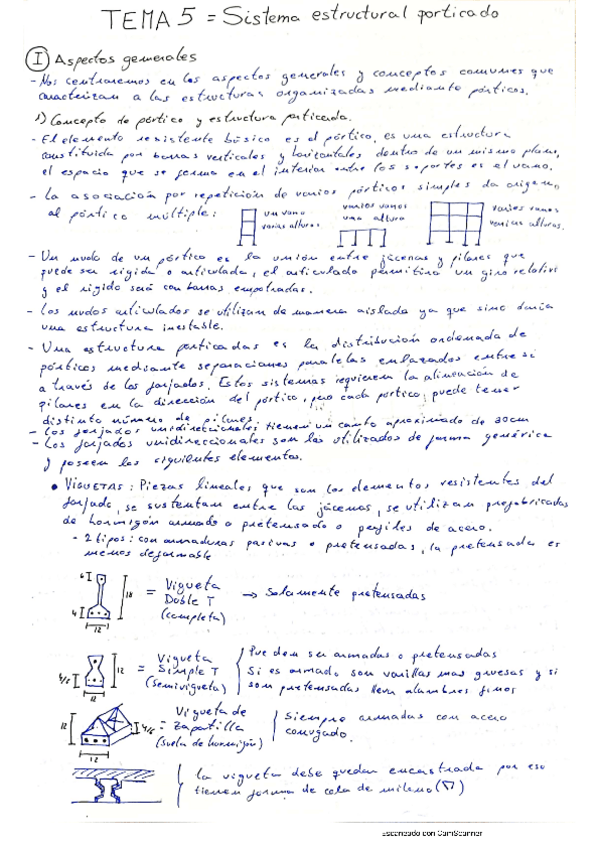 TEMA 5 = Sistema estructural porticado
I Aspectos generales
- Nos centraremos en los aspectos generales y conceptos comunes que
caracterizan a las estructuras organizadas mediante pórticos.
1) Concepto de pórtico y estructura porticada.
- El elemento resistente básico es el pórtico, es una estructura
constituida por barras verticales y horizontales dentro de un mismo plano,
el espacio que se forma en el interior entre los soportes es el vano.
- La asociación por repetición de varios pórticos simples da origen
al pórtico múltiple:
un vano
varias alturas
varios vanos
una altura
varios vanos
varias alturas.
- Un nudo de un pórtico es la unión entre jácenas y pilares que
puede ser rígida o articulada, el articulado permitirá un giro relativo
y el rígido será con barras empotradas.
- Los nudos articulados se utilizan de manera aislada ya que sino daría
una estructura inestable.
- Una estructura porticadas es la distribución ordenada de
pórticos mediante separaciones paralelas enlazados entre sí
a través de los forjados. Estos sistemas requieren la alineación de
pilares en la dirección del pórtico, pero cada pórtico puede tener
distinto número de pilares.
- Los forjados unidireccionales tienen un canto aproximado de 30cm
- Los forjados unidireccionales son los utilizados de forma genérica
y poseen los siguientes elementos.
• VIGUETAS: Piezas lineales que son los elementos resistentes del
forjado, se sustentan entre las jácenas, se utilizan prefabricadas
de hormigón armado o pretensado o perfiles de acero.
- 2 tipos: con armaduras pasivas o pretensadas, la pretensada es
menos deformable
6 18 4 12
= Vigueta
Doble T
(completa)
→ Solamente pretensadas
4/5 12 12
= Vigueta
Simple T
(semivigueta)
Pueden ser armadas o pretensadas
Si es armado son varillas mas gruesas y si
son pretensadas lleva alambres finos
12 4/5 12
= Vigueta de
Zapatilla
(suela de hormigón)
Siempre armadas con acero
corrugado.
La vigueta debe quedar encastrada por eso
tienen forma de cola de milano (▽)
Escaneado con CamScanner